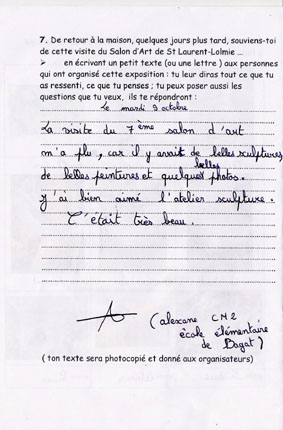 7. De retour à la maison, quelques jours plus tard, souviens-toi
de cette visite du Salon d'Art de St Laurent-Lolmie ...
➢ en écrivant un petit texte (ou une lettre ) aux personnes
qui ont organisé cette exposition : tu leur diras tout ce que tu
as ressenti, ce que tu penses ; tu peux poser aussi les
questions que tu veux, ils te répondront :
Le mardi 9 octobre
La visite du 7ème salon d'art
m'a plu, car il y avait de belles sculptures
de belles peintures et quelques belles photos.
J'ai bien aimé l'atelier sculpture.
C'était très beau.
(alexane CM2
école élémentaire
de Bagat)
( ton texte sera photocopié et donné aux organisateurs)